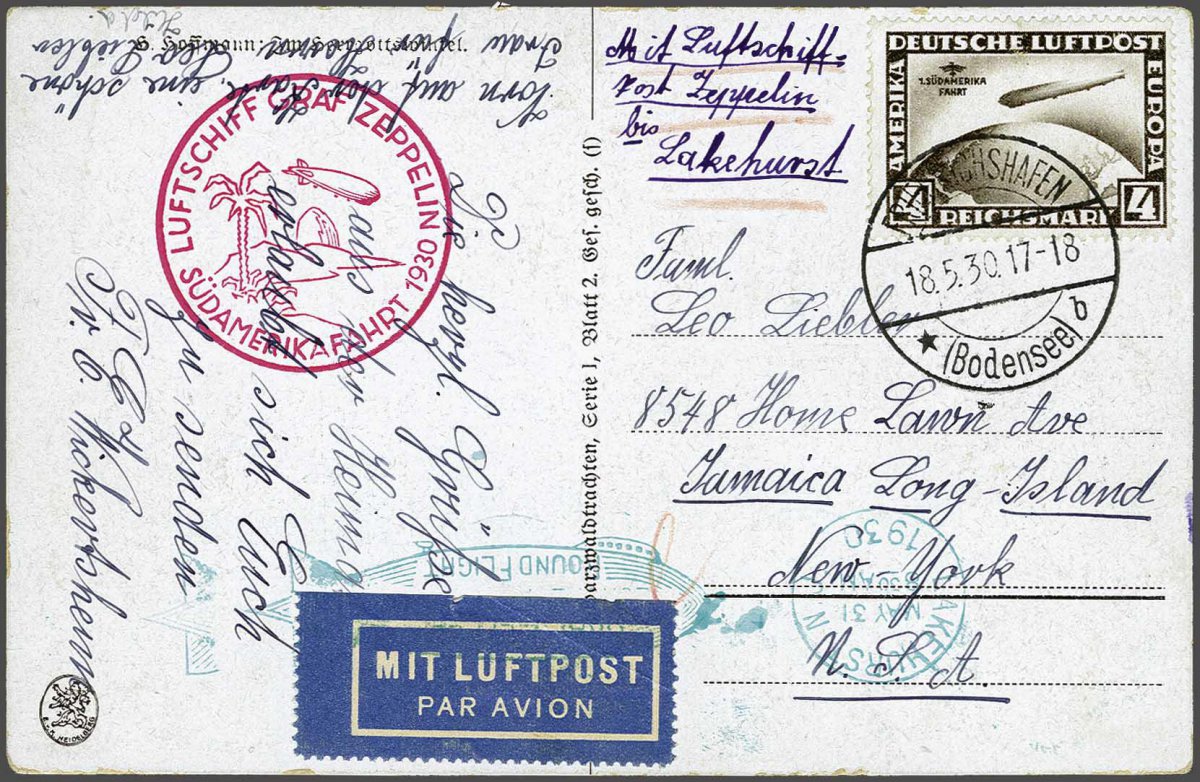 Mit Luftschiff-
Post Zeppelin
bis
Lakehurst
DEUTSCHE LUFTPOST
AMERIKA
EUROPA
1. SÜDAMERIKA
FAHRT
4 REICHSMARK 4
FRIEDRICHSHAFEN
18.5.30.17-18
(Bodensee) b
Faml.
Leo Liebler
8548 Home Lawn Ave
Jamaica Long-Island
New-York
N. S. A.
LAKEHURST N
MAY 31
1930
LUFTSCHIFF GRAF ZEPPELIN
SÜDAMERIKAFAHRT 1930
Die herzl. Grüße
aus der Heimat
erlaubt sich Euch
zu senden
Vorn auf der Karte eine schöne
Frau
Leo Liebler
ROUND FLIGHT
MIT LUFTPOST
PAR AVION
Schwarzwaldtrachten, Serie I, Blatt 2. Ges. gesch. (f)
HEIDELBERG